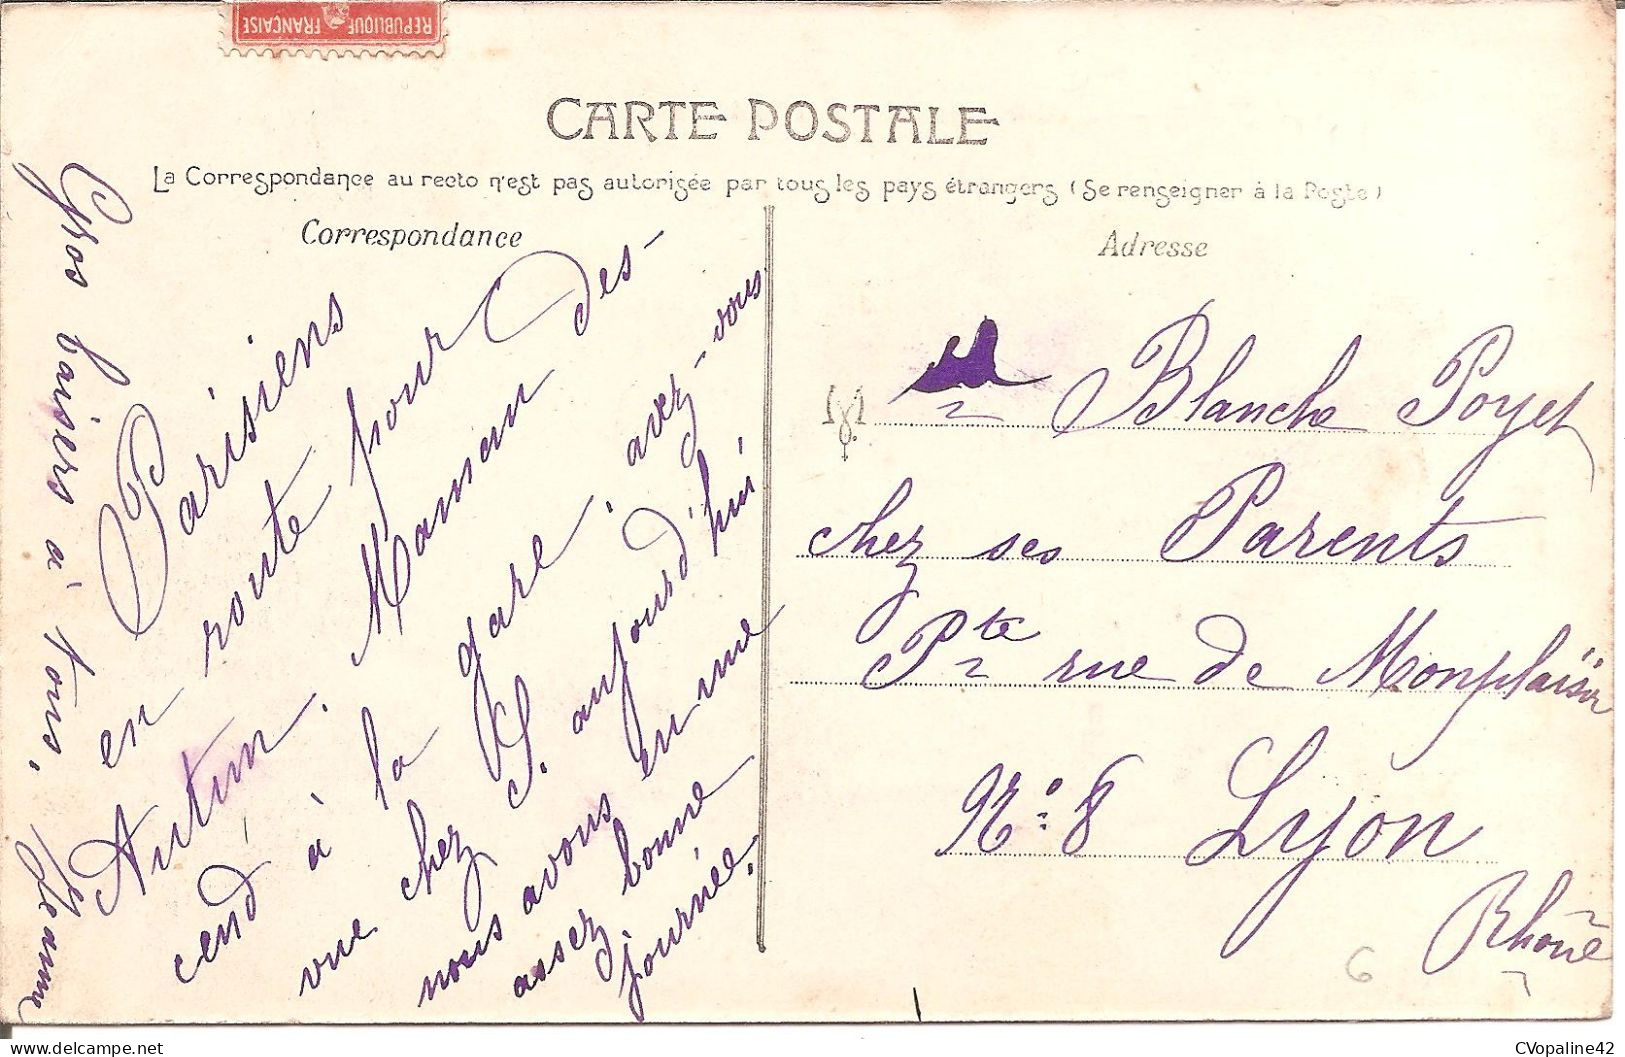 REPUBLIQUE FRANÇAISE
CARTE POSTALE
La Correspondance au recto n'est pas autorisée par tous les pays étrangers (Se renseigner à la Poste)
Correspondance
Parisiens
en route pour
Autun. Maman des-
cend à la gare, avez-vous
vue chez S. aujourd'hui
nous avons eu une
assez bonne
journée.
Gros baisers à tous,
Jeanne
Adresse
Blanche Poyet
chez ses Parents
Pte rue de Monplaisir
No: 8 Lyon
Rhône
6
CVopaline42